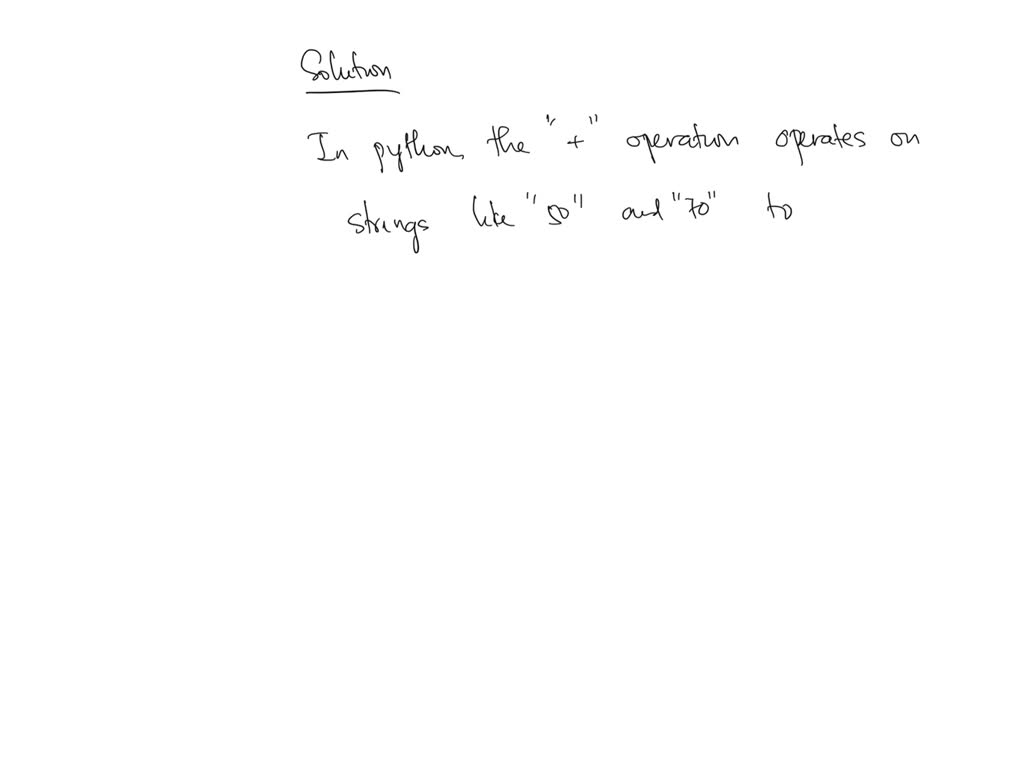 Solution
In python, the "+" operation operates on
strings like "50" and "70" to